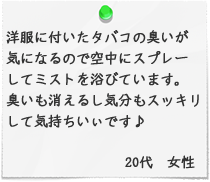 洋服に付いたタバコの臭いが
気になるので空中にスプレー
してミストを浴びています。
臭いも消えるし気分もスッキリ
して気持ちいぃです♪
20代　女性